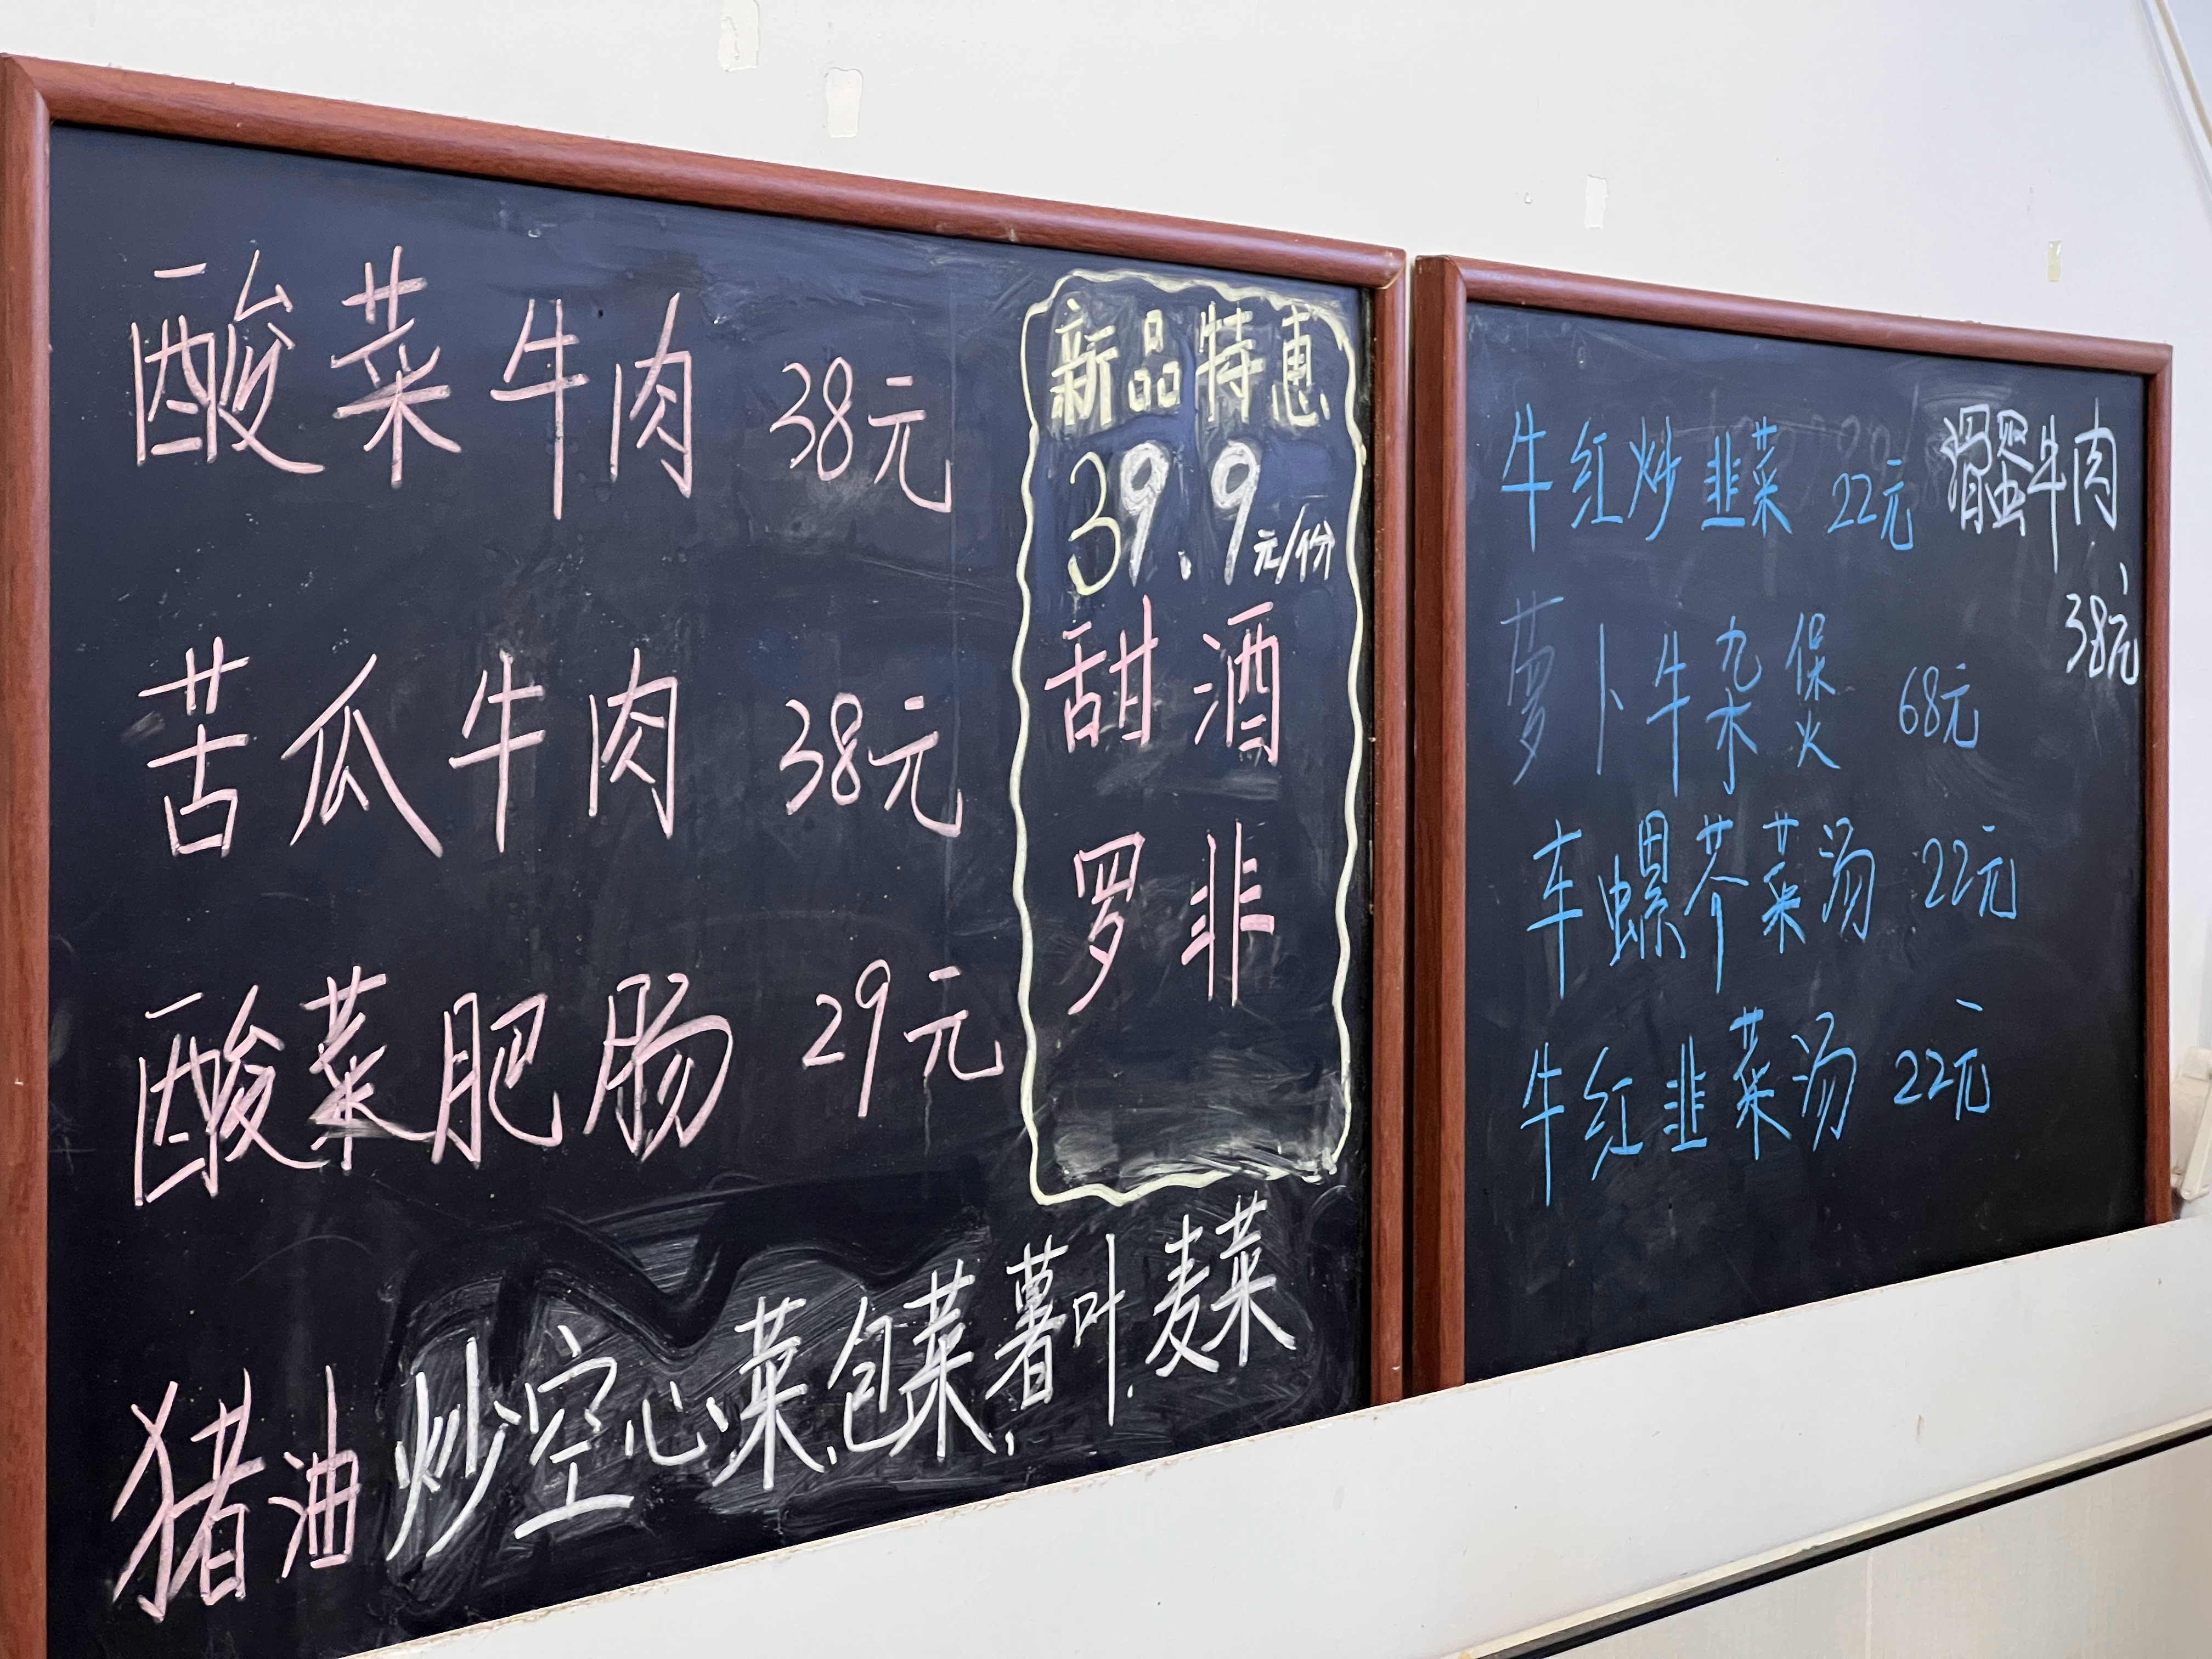 酸菜牛肉 38元
苦瓜牛肉 38元
酸菜肥肠 29元
猪油炒空心菜,包菜,薯叶,麦菜
新品特惠
39.9元/份
甜酒
罗非
牛红炒韭菜 22元
滑蛋牛肉
38元
萝卜牛杂煲 68元
车螺芥菜汤 22元
牛红韭菜汤 22元